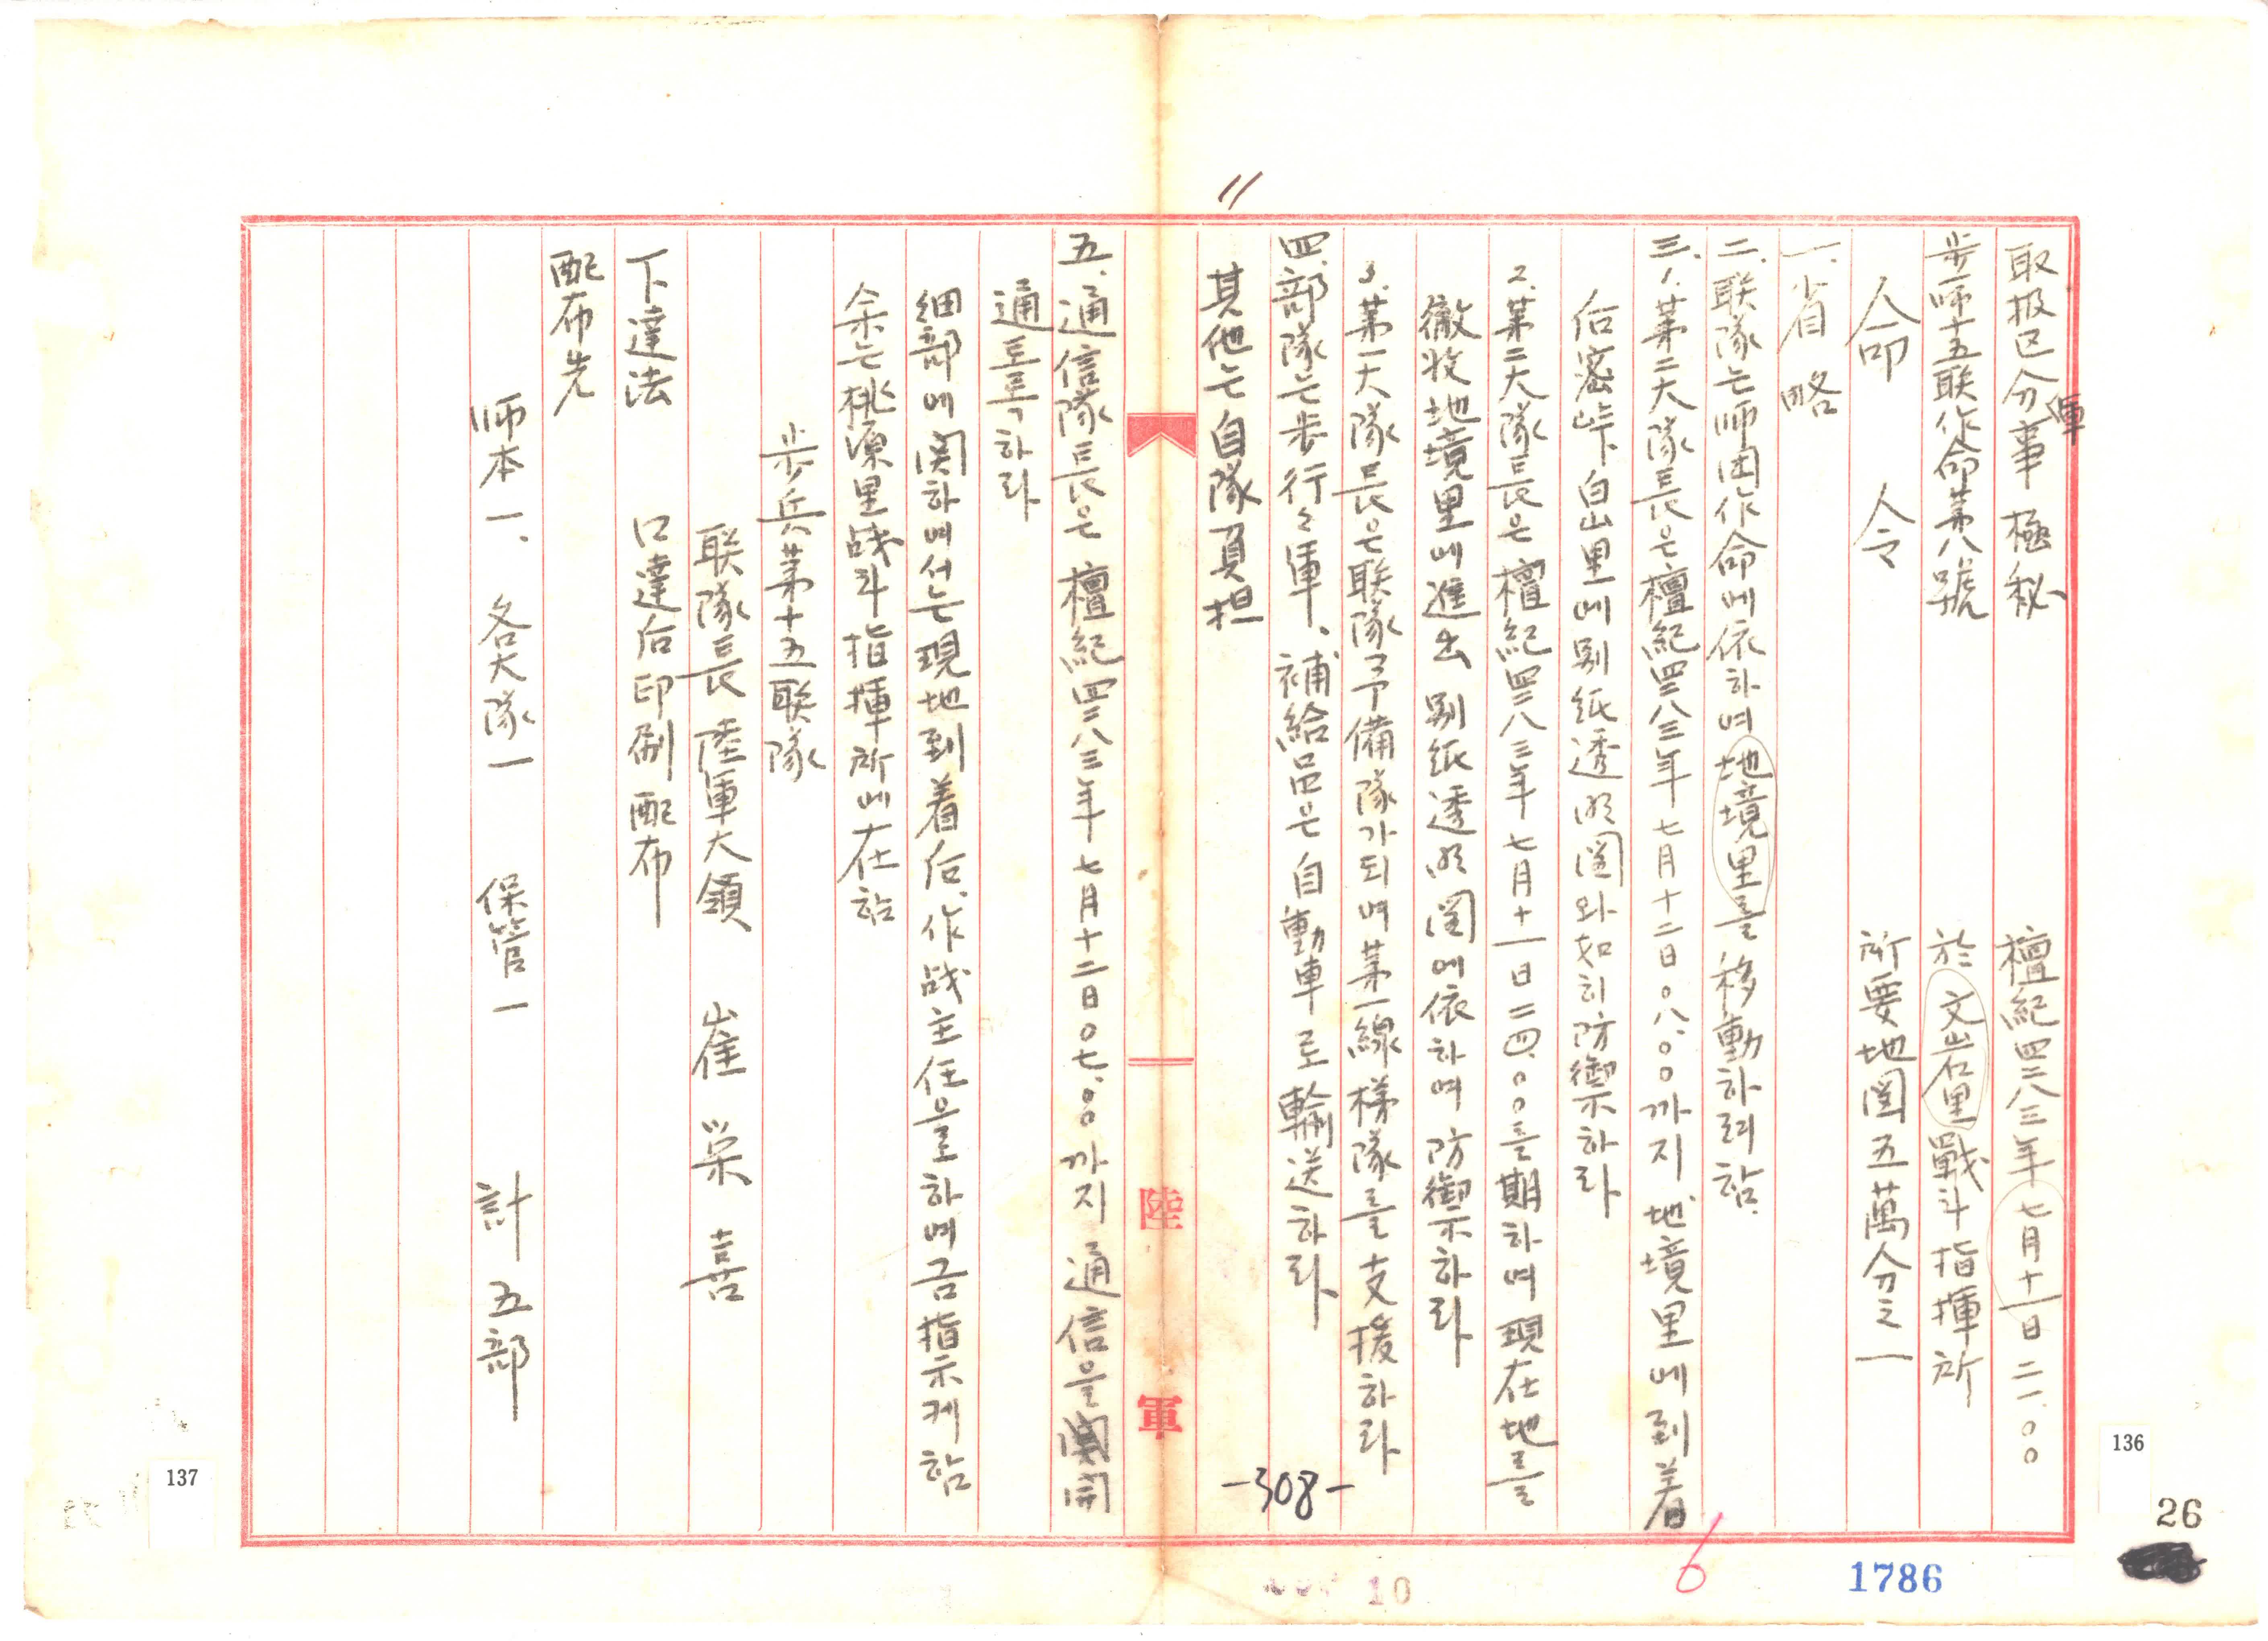 取扱区分 軍事極秘
檀紀四二八三年七月十一日二一.〇〇
步師十五联作命第八號
於文岩里戰斗指揮所
命令
所要地図五萬分之一
一.省略
二.联隊는师団作命에依하여地境里를移動하려함.
三.1.第二大隊長은檀紀四二八三年七月十二日〇八.〇〇까지地境里에到着
后密峠下白山里에别紙透明図와如히防禦하라
2.第三大隊長은檀紀四二八三年七月十一日二四.〇〇를期하여現在地를
徹收地境里에進出别紙透明図에依하여防禦하라
3.第一大隊長은联隊予備隊가되며第一線梯隊를支援하라
四.部隊는步行行軍、補給品은自動車로輸送하라
其他는自隊負担
五.通信隊長은檀紀四二八三年七月十二日〇七.〇〇까지通信을開
通토록하라
細部에関하여서는現地到着后.作战主任을하여금指示케함
余는桃源里战斗指揮所에在함
步兵第十五联隊
联隊長 陸軍大領 崔栄喜
下達法 口達后印刷配布
配布先
师本一、各大隊一 保管一 計五部
陸軍
-308-
136
137
26
1786
6
10